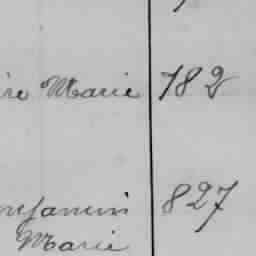 ire Marie 782
enjamin 827
Marie